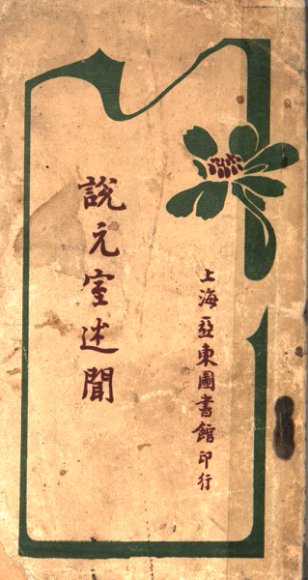 上海亞東圖書館印行
說元室述聞